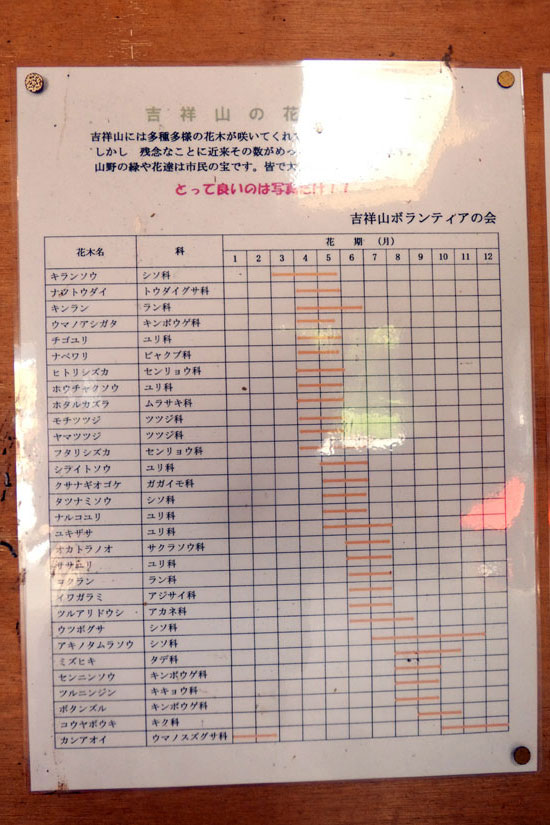 吉祥山の花
吉祥山には多種多様の花木が咲いてくれて
しかし 残念なことに近来その数がめっ
山野の緑や花達は市民の宝です。皆で大
とって良いのは写真だけ！！
吉祥山ボランティアの会
花木名 科 花 期 (月)
1 2 3 4 5 6 7 8 9 10 11 12
キランソウ シソ科
ナツトウダイ トウダイグサ科
キンラン ラン科
ウマノアシガタ キンポウゲ科
チゴユリ ユリ科
ナベワリ ビャクブ科
ヒトリシズカ センリョウ科
ホウチャクソウ ユリ科
ホタルカズラ ムラサキ科
モチツツジ ツツジ科
ヤマツツジ ツツジ科
フタリシズカ センリョウ科
シライトソウ ユリ科
クサナギオゴケ ガガイモ科
タツナミソウ シソ科
ナルコユリ ユリ科
ユキザサ ユリ科
オカトラノオ サクラソウ科
ササユリ ユリ科
コクラン ラン科
イワガラミ アジサイ科
ツルアリドウシ アカネ科
ウツボグサ シソ科
アキノタムラソウ シソ科
ミズヒキ タデ科
センニンソウ キンポウゲ科
ツルニンジン キキョウ科
ボタンズル キンポウゲ科
コウヤボウキ キク科
カンアオイ ウマノスズグサ科